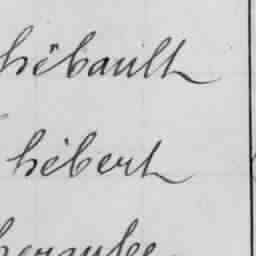 hébault
hébert